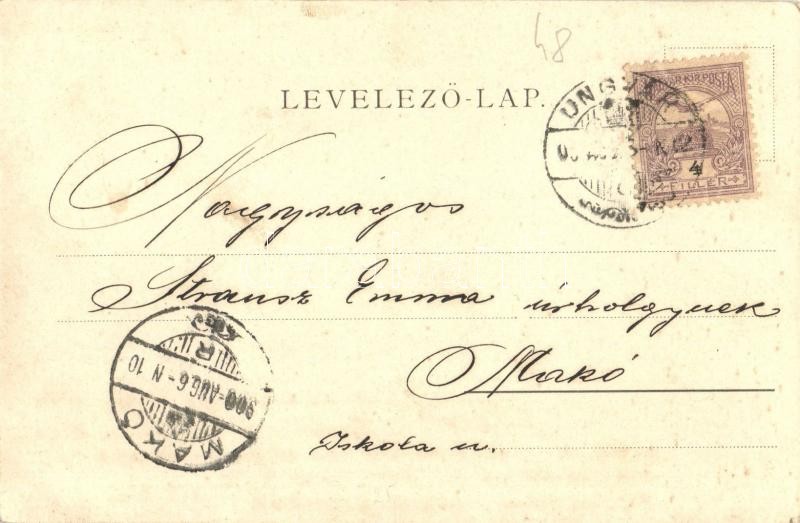 48
LEVELEZŐ-LAP.
MAGYAR KIR. POSTA
4
FILLÉR
UNGVÁR
Nagyságos
Strausz Emma úrhölgynek
Makó
Iskola u.
MAKÓ
900 AUG 6 - N 10